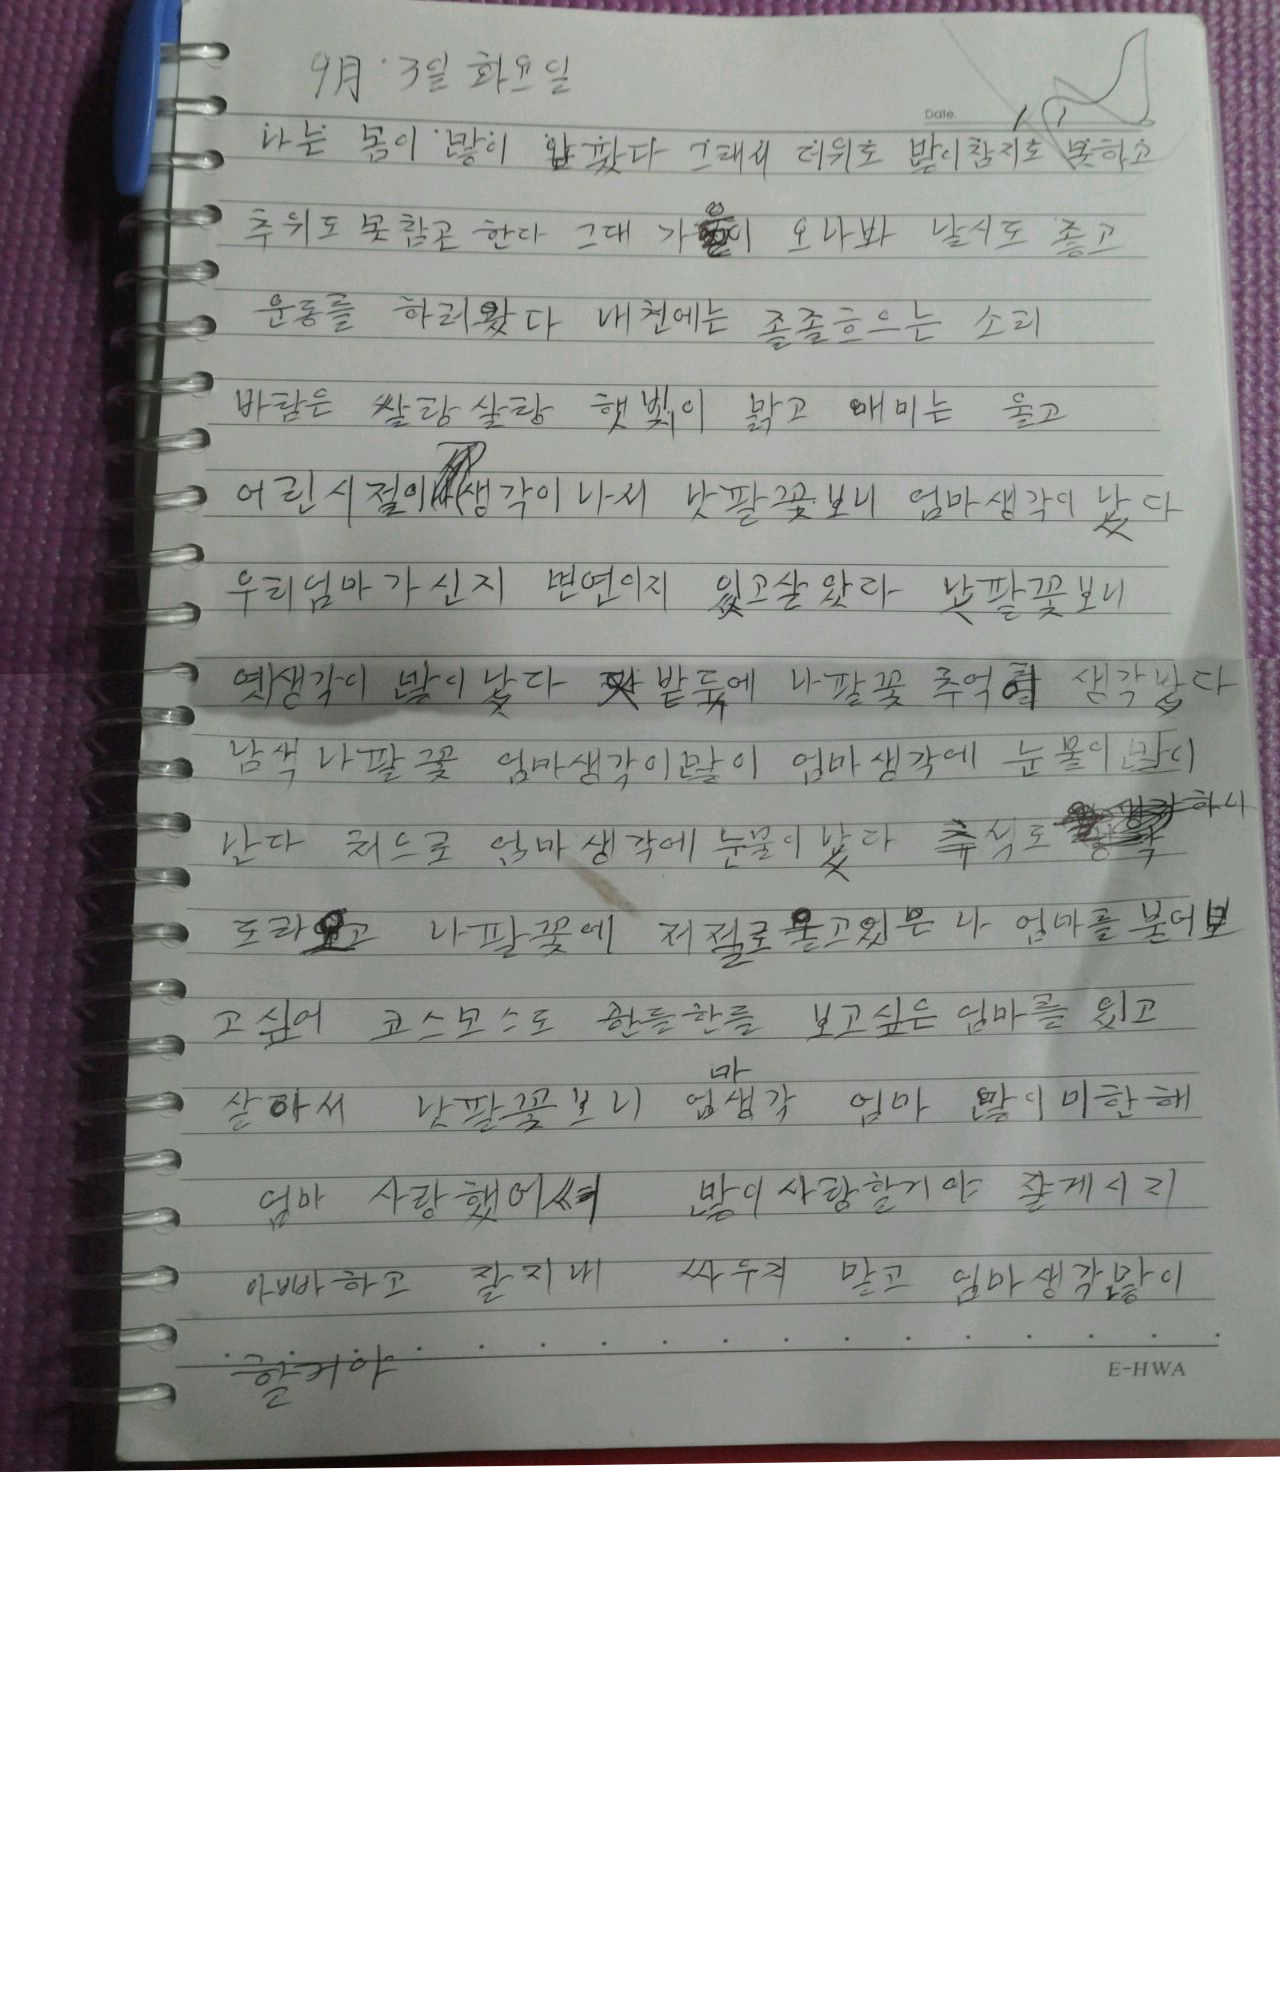 9月 3일 화요일
Date.
나는 몸이 많이 압팠다 그래서 더위로 많이참지로 못하고
추위도 못참곤 한다 그대 가을이 오나봐 날시도 좋고
운동를 하러왔다 내천에는 졸졸흐으는 소리
바람은 쌀랑살랑 햇빛이 맑고 매미는 울고
어린시절이 생각이나서 낫팔꽃보니 엄마생각이 났다
우리엄마가신지 면연이지 있고살았다 낫팔꽃보니
옛생각이 많이 났다 밭뚝에 나팔꽃 추억 생각났다
남색 나팔꽃 엄마생각이많이 엄마생각에 눈물이 많이
난다 처으로 엄마생각에 눈물이 났다 추석도 하니
도라오고 나팔꽃에 저절로울고있은 나 엄마를 불더보
고싶어 코스모스도 한들한를 보고싶은엄마를 있고
살아서 낫팔꽃보니 엄마생각 엄마 많이미한해
엄마 사랑했어써 많이사랑할거야 잘게시리
아빠하고 잘지내 싸우지 말고 엄마생각많이
할거야
E-HWA